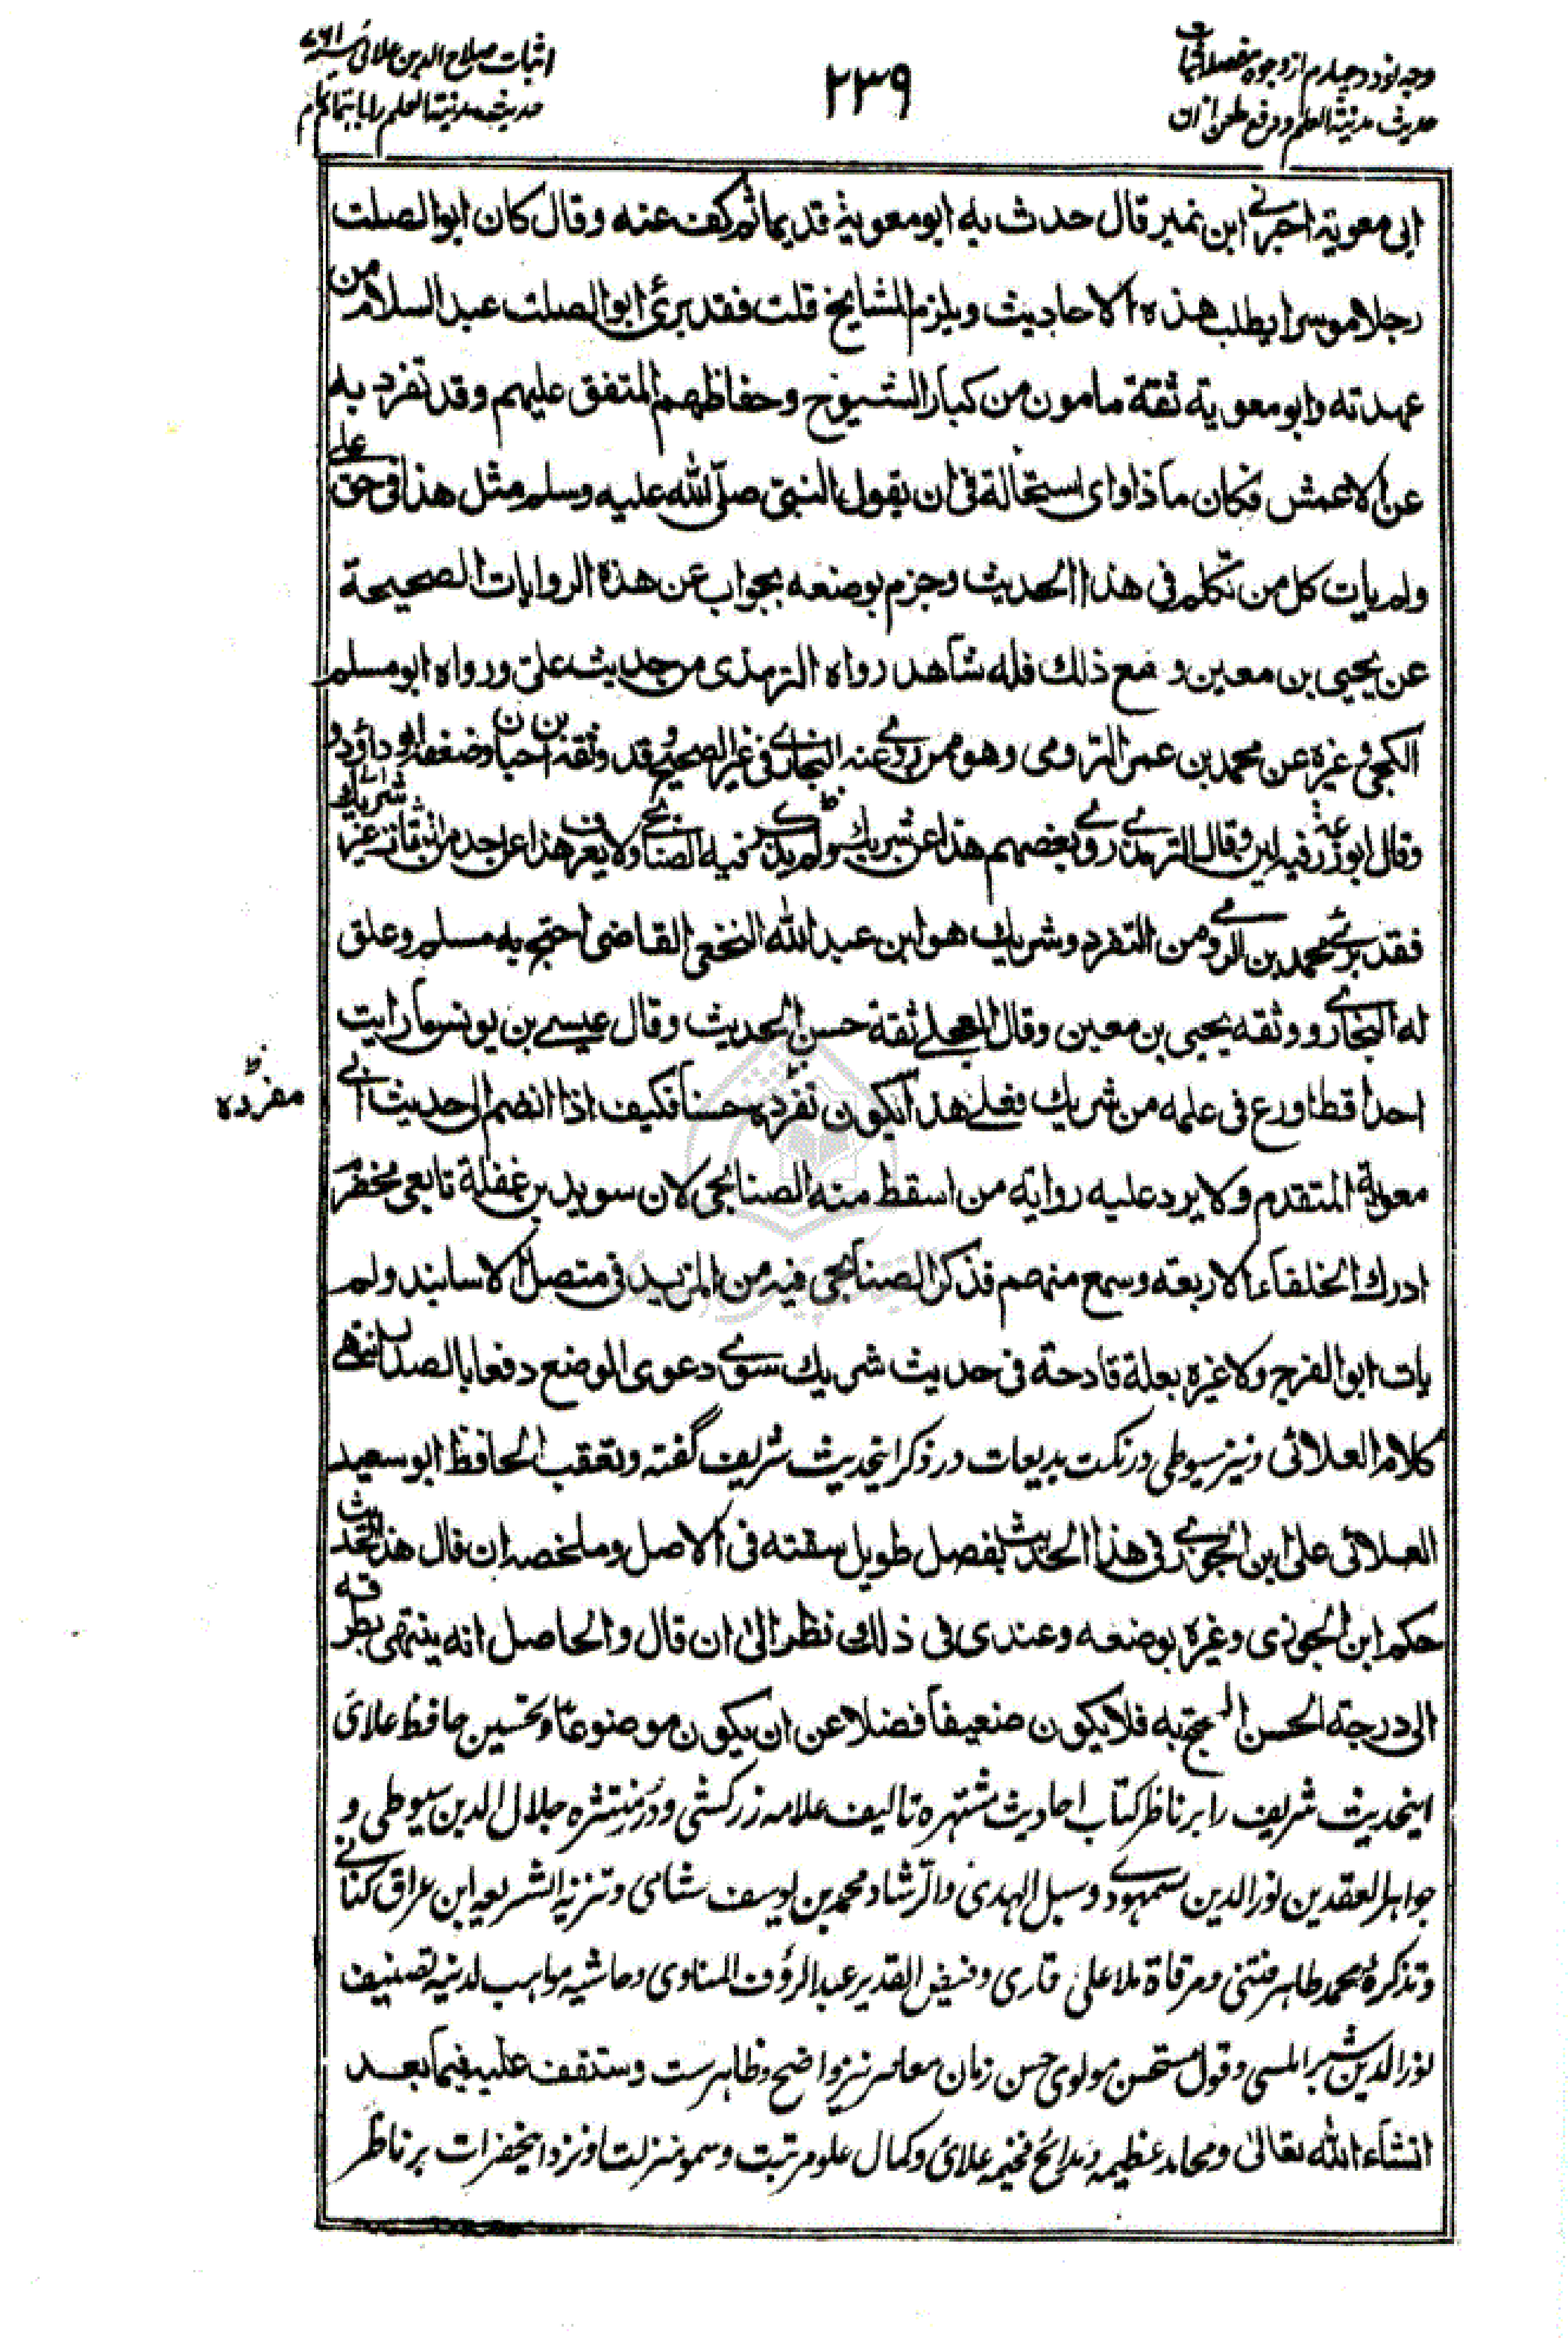 وجه نود و چهارم از وجوه مفصله اثبات
حدیث مدینة العلم و دفع طعن ازان
۲۳۹
اثبات صلاح الدین علائی سنه ۷۶۱
حدیث مدینة العلم را باهتمام تام
ابی معویة اخبرنی ابن نمیر قال حدث به ابو معویة قدیما ثم کف عنه و قال کان ابو الصلت
رجلا موسرا یطلب هذه الاحادیث و یلزم المشایخ قلت فقد برئ ابو الصلت عبد السلام من
عهدته و ابو معویة ثقة مامون من کبار الشیوخ و حفاظهم المتفق علیهم و قد تفرد به
عن الاعمش فکان ماذا و ای استحالة فی ان یقول النبی صلی الله علیه وسلم مثل هذا فی حق علی
ولم یات کل من تکلم فی هذا الحدیث و جزم بوضعه بجواب عن هذه الروایات الصحیحة
عن یحیی بن معین و مع ذلك فله شاهد رواه الترمذی من حدیث علی و رواه ابو مسلم
الکجی و غیره عن محمد بن عمر الرومی و هو ممن روی عنه البخاری فی غیر الصحیح و قد وثقه ابن حبان و ضعفه ابو داؤد و
وقال ابو زرعة فیه لین و قال الترمذی روی بعضهم هذا عن شریك و لم یذکر فیه الصنابحی و لا یعرف هذا عن احد من الثقات غیر شریك
فقد برئ محمد بن الرومی من التفرد و شریك هو ابن عبد الله النخعی القاضی احتج به مسلم و علق
له البخاری و وثقه یحیی بن معین و قال العجلی ثقة حسن الحدیث و قال عیسی بن یونس ما رایت
احدا قط اورع فی علمه من شریك فعلی هذا یکون تفرده حسنا فکیف اذا انضم الی حدیث ابی
مفرده
معویة المتقدم و لا یرد علیه روایة من اسقط منه الصنابحی لان سوید بن غفلة تابعی مخضرم
ادرك الخلفاء الاربعة و سمع منهم فذکر الصنابحی فیه من المزید فی متصل الاسانید و لم
یات ابو الفرج و لا غیره بعلة قادحة فی حدیث شریك سوی دعوی الوضع دفعا بالصدر انتهی
کلام العلائی و نیز سیوطی در نکت بدیعات در ذکر اینحدیث شریف گفته و تعقب الحافظ ابو سعید
العلائی علی ابن الجوزی فی هذا الحدیث بفصل طویل سقته فی الاصل و ملخصه ان قال هذا الحدیث
حکم ابن الجوزی و غیره بوضعه و عندی فی ذلك نظر الی ان قال و الحاصل انه ینتهی بطرقه
الی درجة الحسن المحتج به فلا یکون ضعیفا فضلا عن ان یکون موضوعا و تحسین حافظ علائی
اینحدیث شریف را بر ناظر کتاب احادیث مشتهره تالیف علامه زرکشی و درر منتثره جلال الدین سیوطی و
جواهر العقدین نور الدین سمهودی و سبل الهدی و الرشاد محمد بن یوسف شامی و تنزیه الشریعه ابن عراق کنانی
و تذکرۀ محمد طاهر فتنی و مرقاة ملا علی قاری و فیض القدیر عبد الرؤف المناوی و حاشیه مواهب لدنیه تصنیف
نور الدین شبراملسی و قول مستحسن مولوی حسن زمان معاصر نیز واضح و ظاهرست و ستقف علیه فیما بعد
انشاء الله تعالی و محامد عظیمه و مدائح فخیمه علائی و کمال علو مرتبت و سمو منزلت او نزد اینحضرات بر ناظر